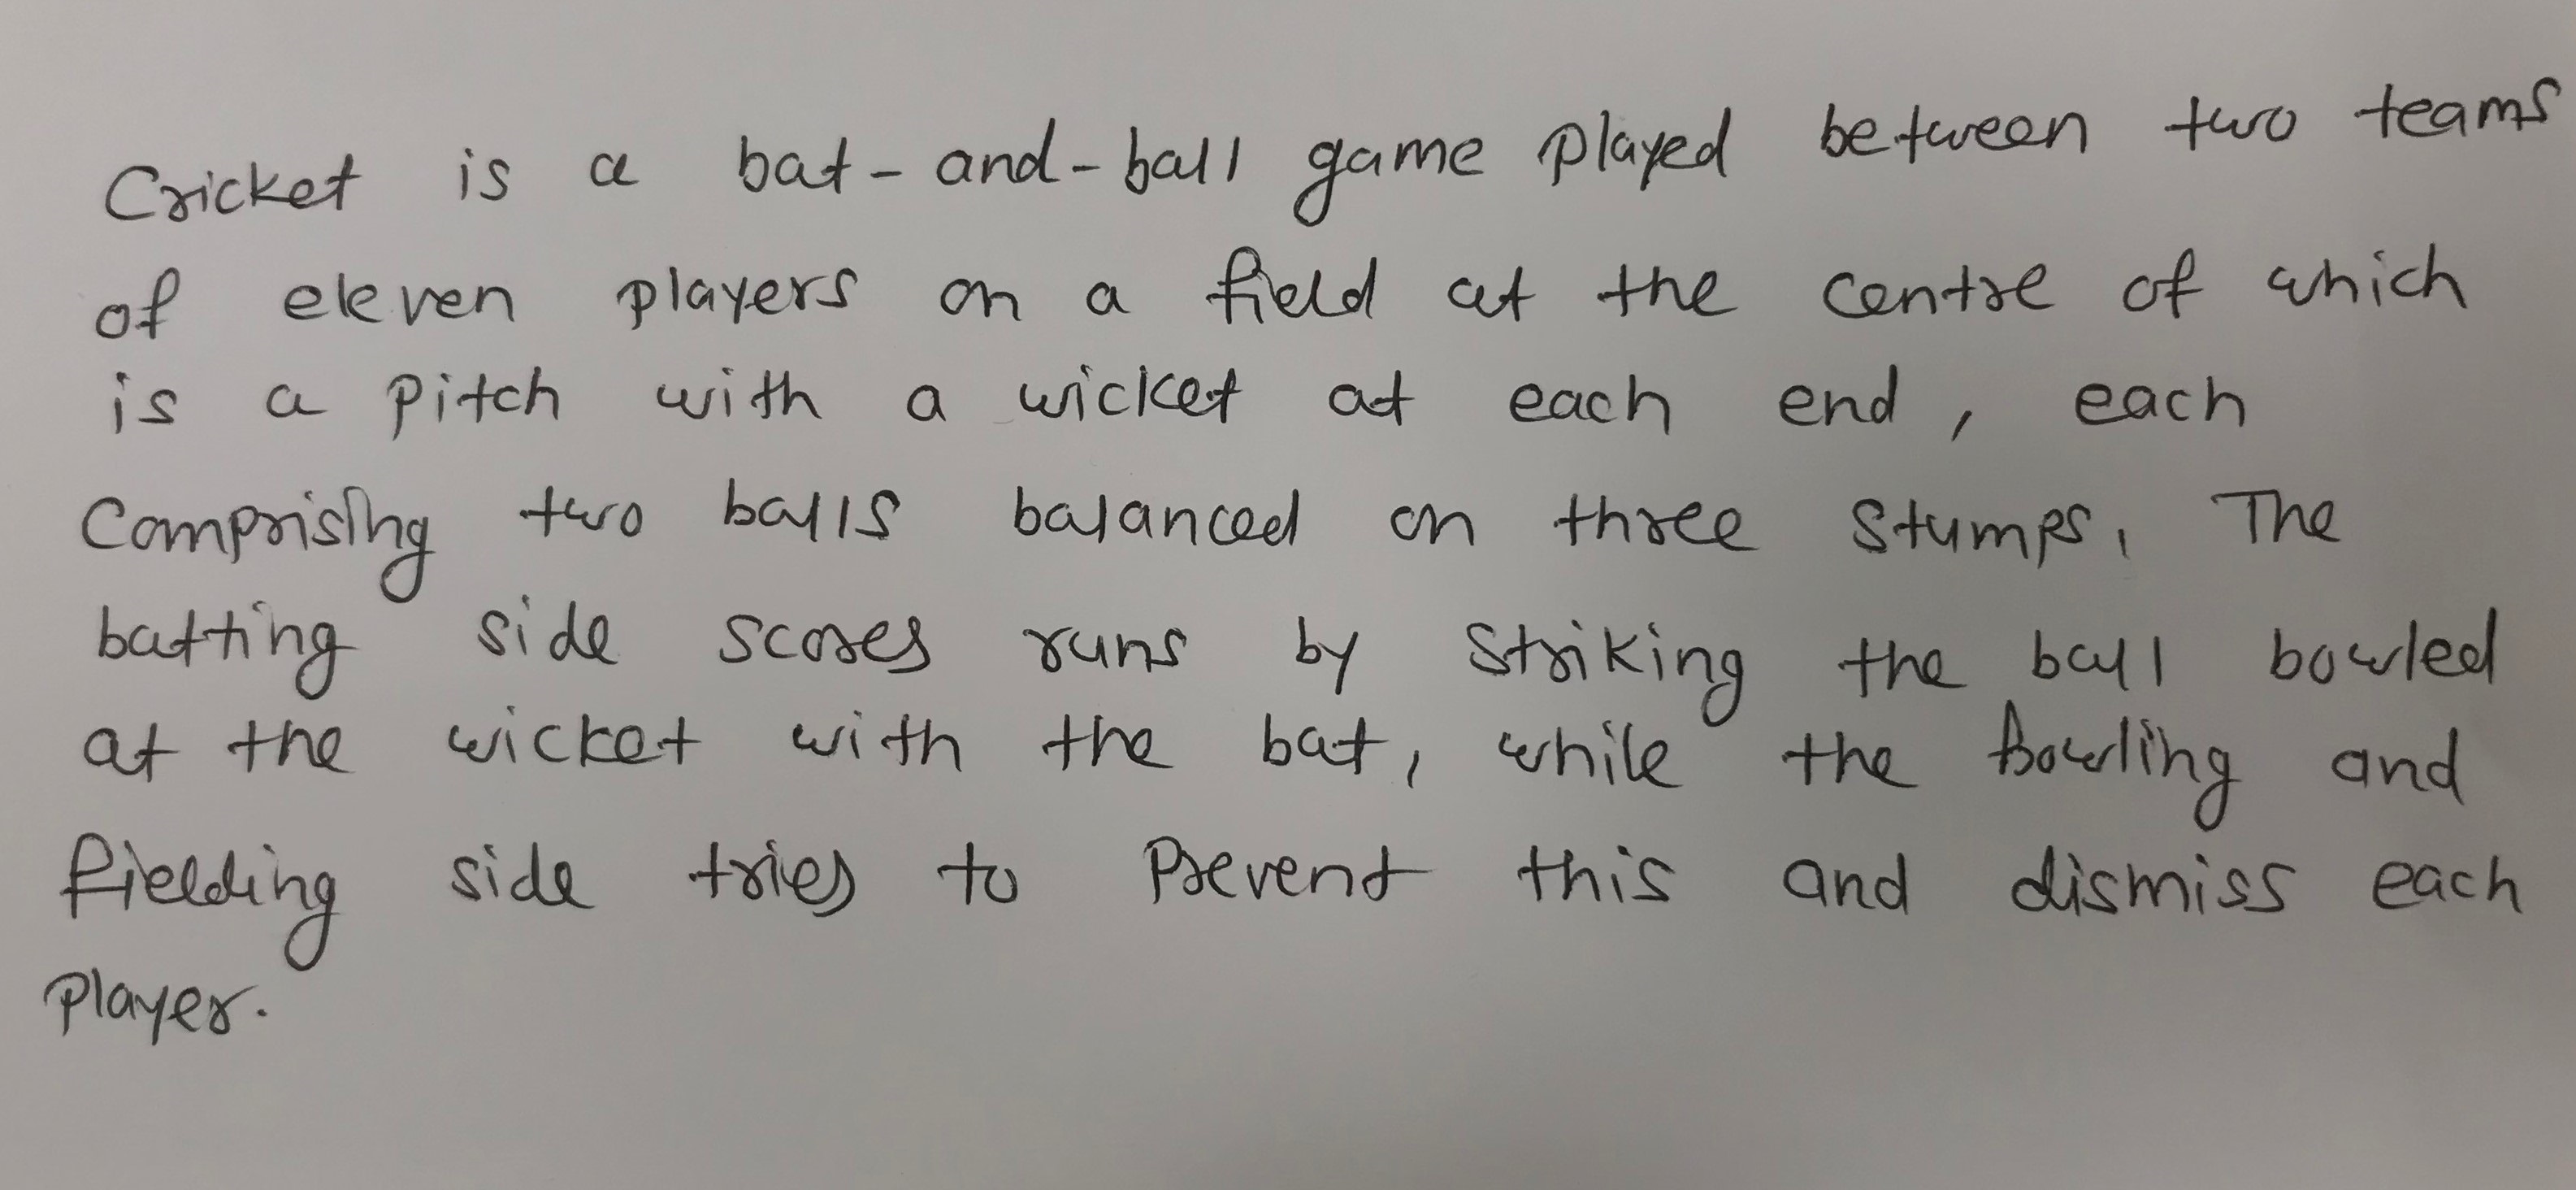 Cricket is a bat-and-ball game played between two teams
of eleven players on a field at the centre of which
is a pitch with a wicket at each end, each
Comprising two balls balanced on three stumps. The
batting side scores runs by striking the ball bowled
at the wicket with the bat, while the Bowling and
fielding side tries to Prevent this and dismiss each
player.